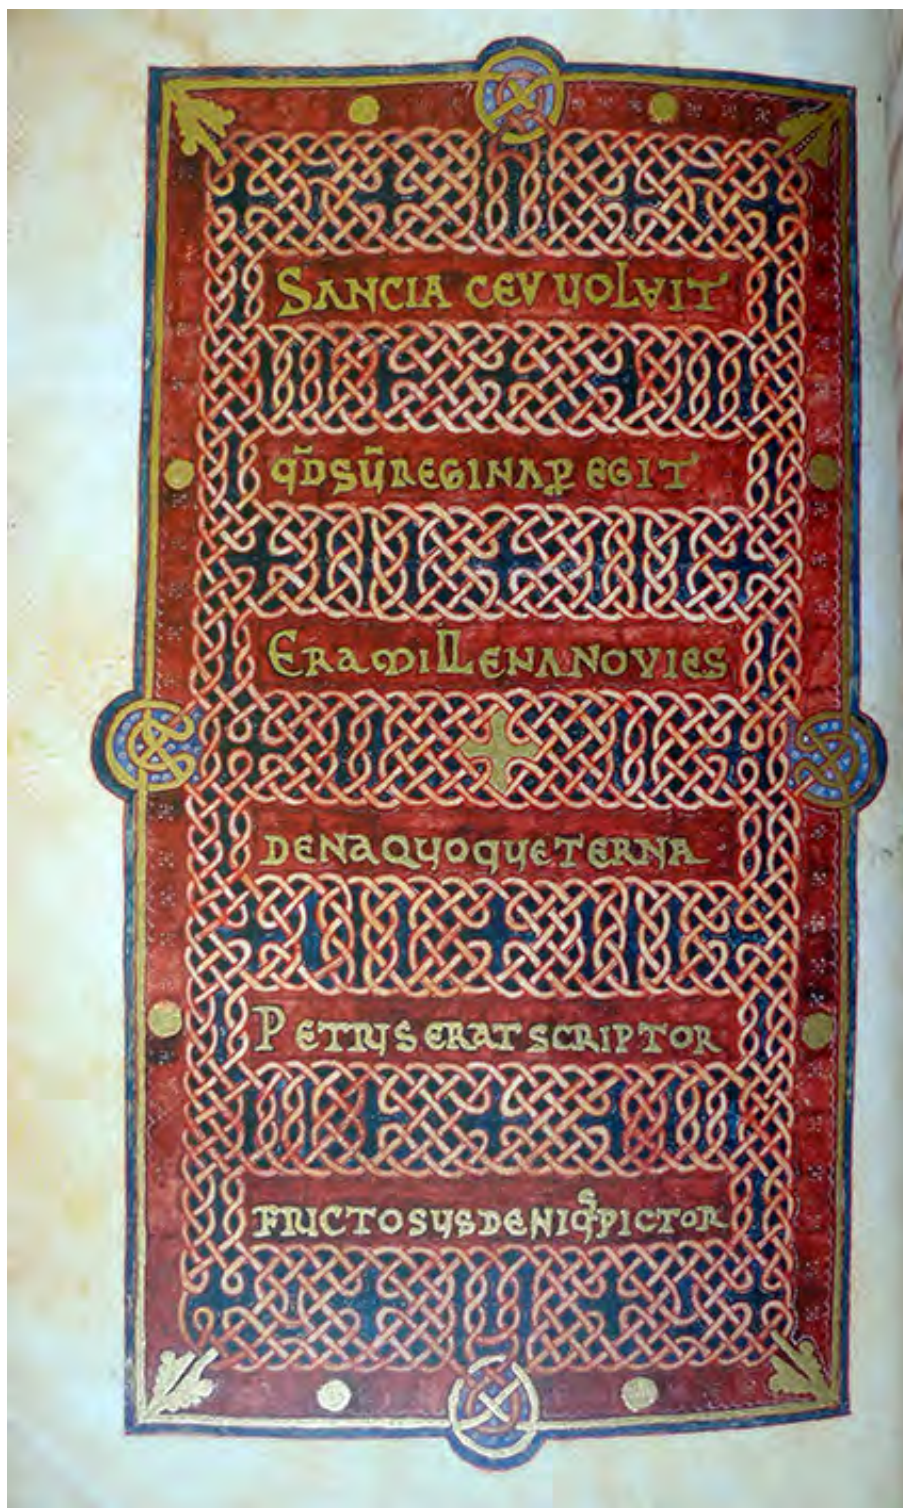 SANCIA CEU UOLUIT
qD̄ SŪ REGINA P EGIT
ERA MILLENA NOVIES
DENA QUOQUE TERNA
PETRUS ERAT SCRIPTOR
FRUCTOSUS DENIQS PICTOR